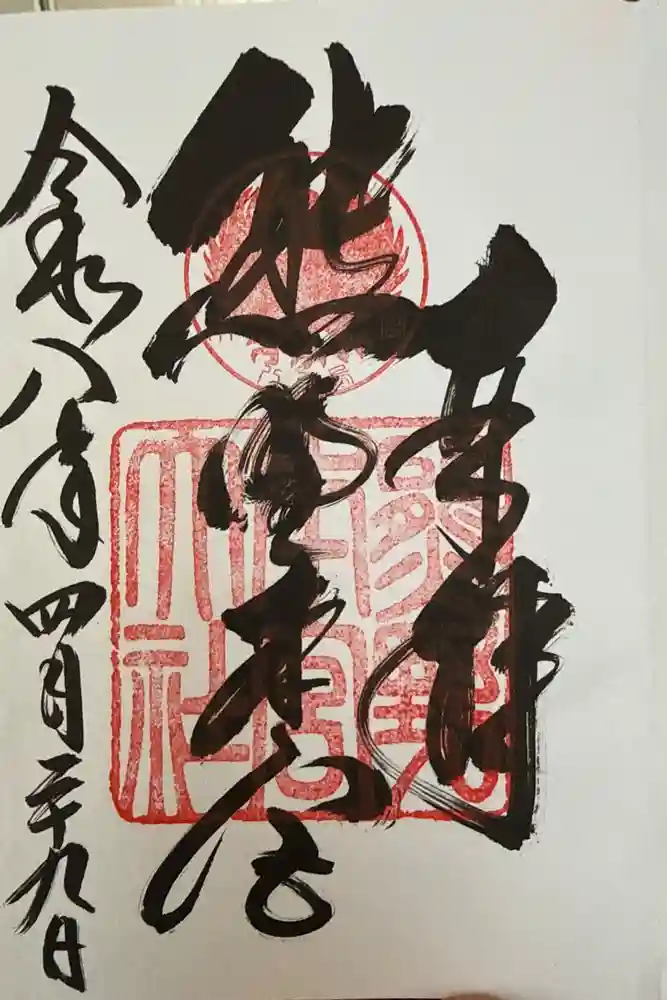 奉拝
熊野本宮
令和八年四月二十九日
熊野
本宮
大社